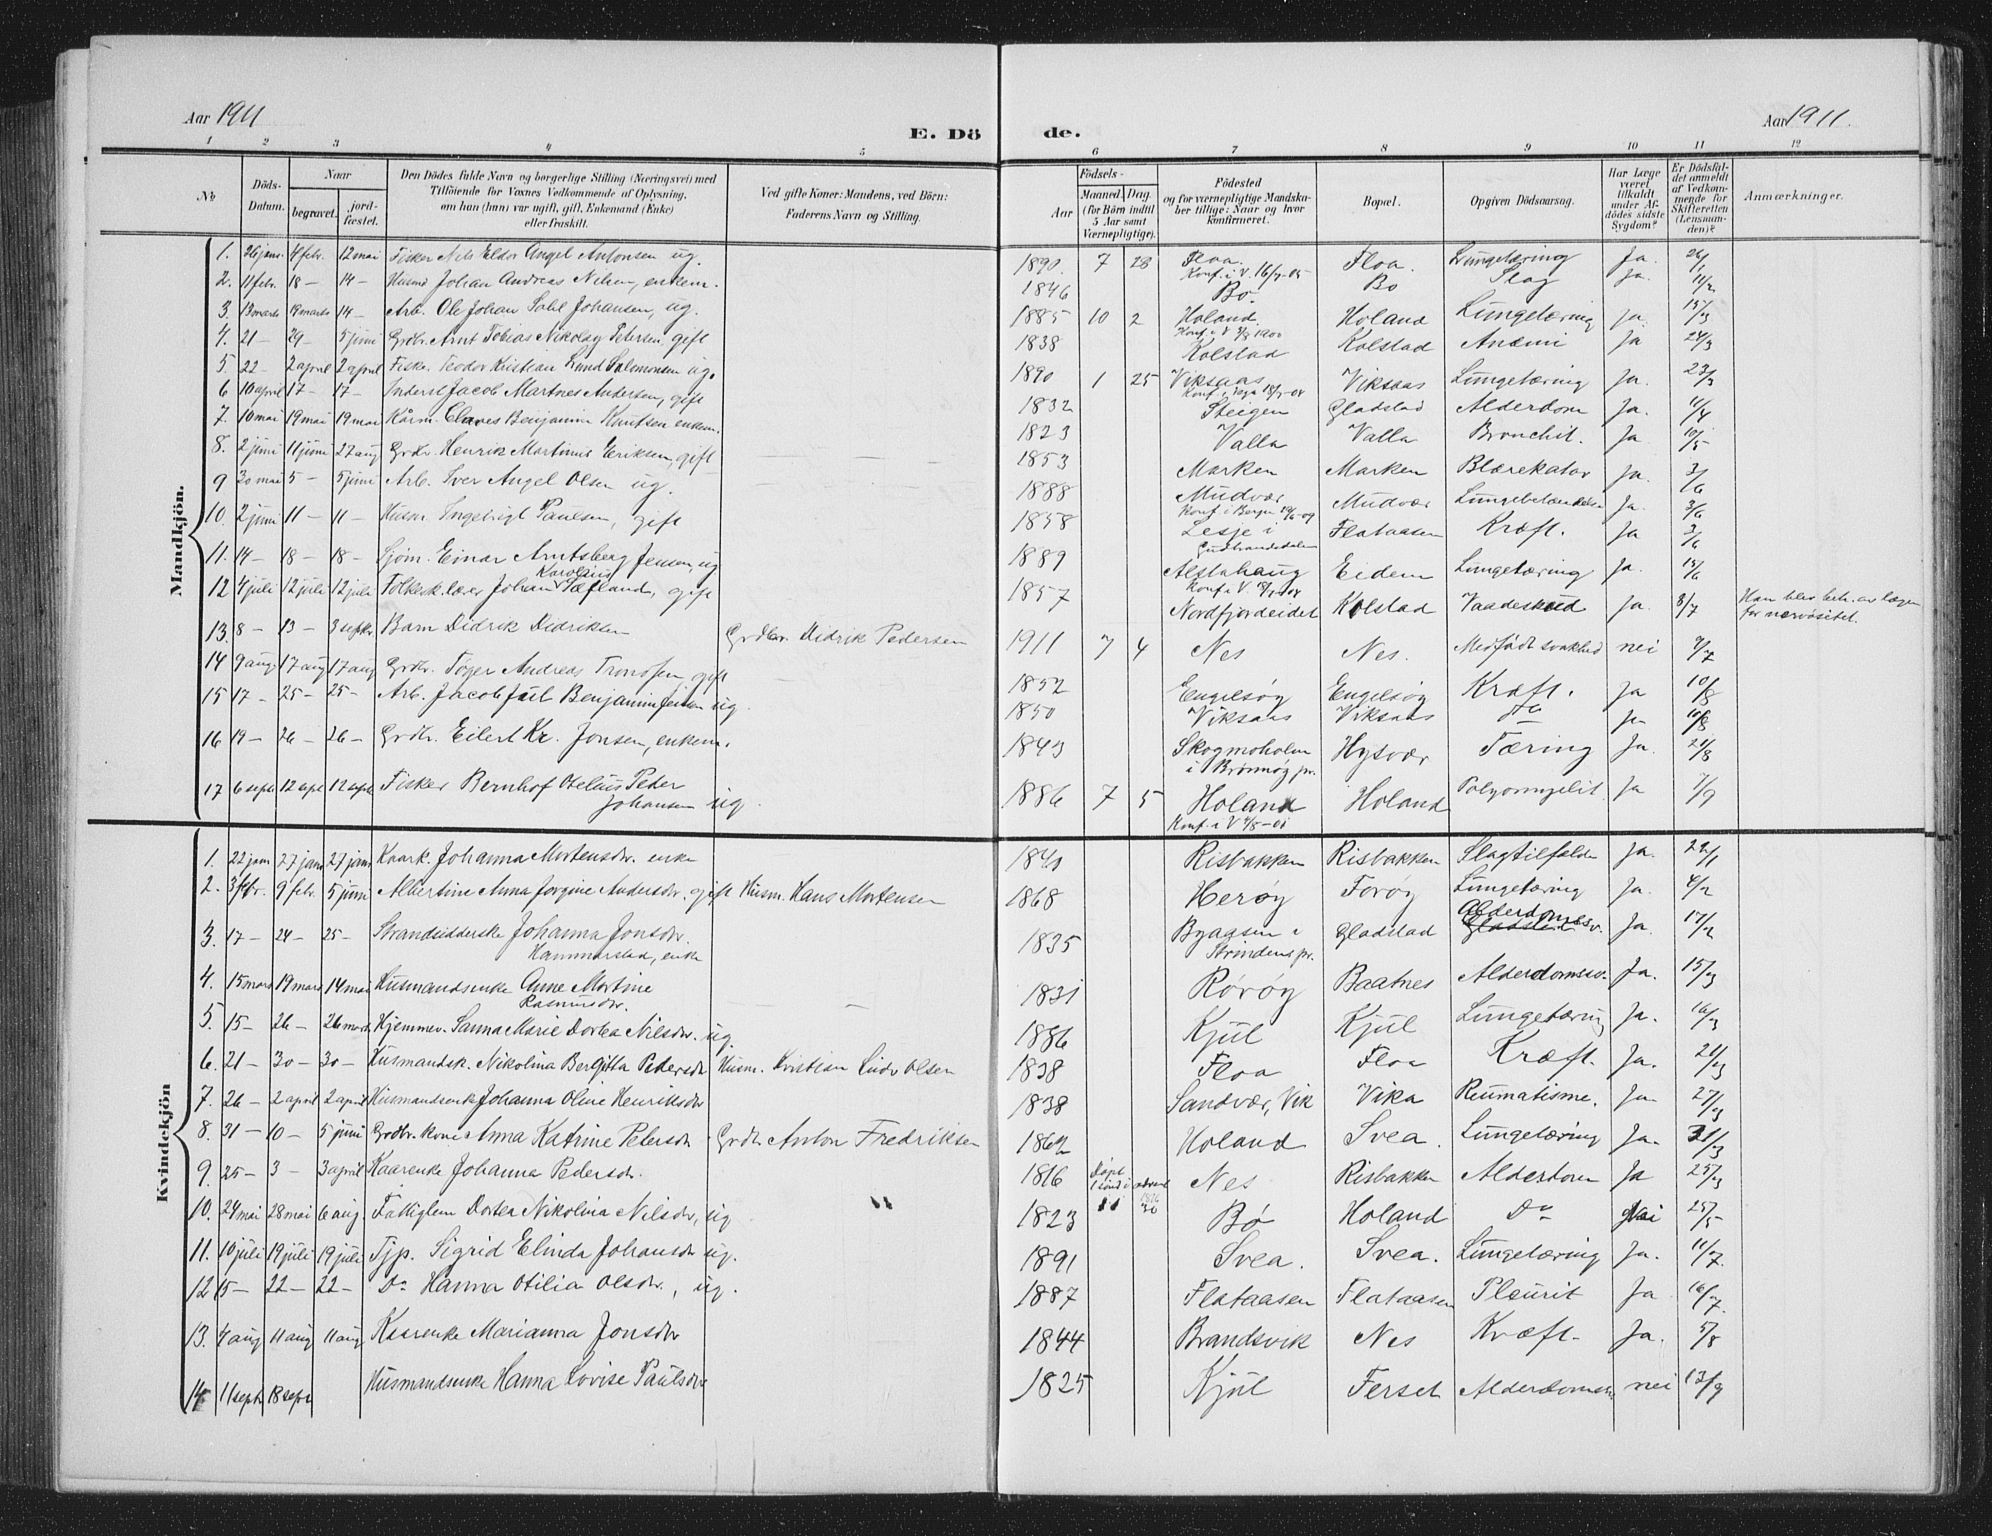 Aar 1911
E. Dö de.
Aar 1911.
1 2 3 4 5 6 7 8 9 10 11 12
No
Döds-Datum.
Naar
begravet.
jord-fæstet.
Den Dödes fulde Navn og borgerlige Stilling (Næringsvei) med
Tilföiende for Voxnes Vedkommende af Oplysning,
om han (hun) var ugift, gift, Enkemand (Enke)
eller fraskilt.
Ved gifte Koner: Mandens, ved Börn:
Faderens Navn og Stilling.
Födsels-
Aar
Maaned Dag.
(for Börn indtil
5 Aar samt
Værnepligtige).
Födested
og for værnepligtige Mandska-
ber tillige: Naar og hvor
konfirmeret.
Bopæl.
Opgiven Dödsaarsag.
Har Læge
været
tilkaldt
under Af-
dödes sidste
Sygdom?
Er Dödsfal-
det anmeldt
af Vedkom-
mende for
Skifteretten
(Lensman-
den)?
Anmærkninger.
Mandkjön.
1. 26 jan. 4 febr. 12 mai Fisker Nils Eldor Angel Antonsen ug. 1890 7 28 Floa. Floa. Lungetæring Ja. 26/1
Konf. i V. 16/7-05
2. 11 febr. 18 — 14 — Husmd Johan Andreas Nilsen, enkem. 1846 Bø. Bø Slag Ja. 11/2
3. 13 marts 19 marts 14 — Arb. Ole Johan Johansen, ug. 1885 10 2 Holand. Holand Lungetæring ja. 15/3
4. 21 — 29 — 5 juni Grdbr. Arnt Tobias Nikolay Petersen, gift 1838 Kolstad Kolstad Anæmi Ja 24/3
5. 22 — 2 april 2 april Fisk. Teodor Kristian Lund Salomonsen ug. 1890 1 25 Viksaas Viksaas Lungetæring Ja. 23/3
6 10 april 17 — 17 — Inderst Jacob Martines Andersen, gift 1832 Steigen Gladstad Alderdom Ja. 11/4
7. 10 mai 19 mai 19 mai Kårm. Claves Benjamin Knutsen enkem. 1823 Valla Valla Bronchit. Ja 10/5
8. 2 juni 11 juni 27 aug Grdbr. Henrik Martinus Eriksen, gift 1853 Marken Marken Blærekatar Ja. 3/6
9 30 mai 5 — 5 juni Arb. Iver Angel Olsen ug. 1888 Mudvær Mudvær Lungebetændelse Ja. 3/6
10. 2 juni 11 — 11 — Husm. Ingebrigt Paulsen, gift 1858 Lesje i Flataasen Kræft. Ja 3/6
Gudbrandsdalen
11. 14 — 18 — 18 — Sjøm. Einar Arntsberg Jensen, ug 1889 Alstahaug Eidem Lungetæring Ja. 15/6
Karolius
12 4 juli 12 juli 12 juli Folkesk.lærer Johan Tæfland, gift 1857 Nordfjordeidet Kolstad Vaadeskud Ja. 8/7 Han blev beh. av lægen
for nervøsitet.
13. 8 — 13 — 3 septr. Barn Didrik Didriksen Grdbr. Didrik Pedersen 1911 7 4 Nes Nes. Medfødt svakhed nei 9/7
14 9 aug. 17 aug 17 aug Grdbr. Töger Andreas Tronsen, gift 1852 Engelsøy Engelsøy Kræft. Ja 10/8
15 17 — 25 — 25 — Arb. Jacob Juel Benjaminsen ug. 1850 Viksaas Viksaas Do Ja
16 19 — 26 — 26 — Grdbr. Eilert Kr. Jonsen, enkem. 1843 Skogmoholm Hysvær Tæring Ja. 21/8
i Brønnøy pr.
17 6 sept 12 sept 12 sept Fisker Bernhof Otelius Peter 1886 7 5 Holand Holand Polyomyelit. Ja 7/9
Johansen ug.
Kvindekjön
1. 22 jan 27 jan 27 jan Kaark. Johanna Mortensdr. enke 1840 Risbakken Risbakken Slagtilfælde Ja. 22/1
2. 3 febr. 9 febr. 5 juni Albertine Anna Jorgine Andersdr. gift Husm. Hans Mortensen 1868 Herøy Forøy Lungetæring Ja. 4/2
3. 17 — 24 — 25 — Strandsidderske Johanna Jonsdr. 1835 Byaasen i Gladstad Alderdomssv. Ja. 17/2
Hammarstad, enke Strindens pr.
4. 15 mars 19 mars 14 mai Husmandsenke Anne Martine 1831 Rørøy Baatnes Alderdomssv. Ja. 15/3
Rasmusdr.
5. 15 — 26 — 26 mars Hjemmev. Sanna Marie Dortea Nilsdr. ug. 1886 Kjul Kjul Lungetæring Ja. 16/3
6. 21 — 30 — 30 — Husmandsk. Nikolina Bergitta Pedersdr Husm. Kristian Ludv Olsen 1838 Floa Floa Kræft. Ja. 21/3
7. 26 — 2 april 2 april Husmandsenke Johanna Oline Henriksdr 1838 Sandvær, Vik Vika Reumatisme. Ja. 27/3
8. 31 — 10 — 5 juni Grdbr. kone Anna Katrine Petersdr Grdb. Anton Fredriksen 1862 Holand Svea. Lungetæring Ja. 31/3
9. 25 — 3 — 3 april Kaarenke Johanna Pedersdr. 1816 Døpt Nes Risbakken Alderdom Ja 25/3
10. 24 mai 28 mai 6 aug. Fattiglem Dortea Nikolina Nilsdr, ug 1823 Bø Holand Do Nei 25/5
11. 10 juli 19 juli 19 juli Tjp. Sigrid Elinda Johansdr ug. 1891 Svea. Svea. Lungetæring Ja. 11/7
12 15 — 22 — 22 — Do Hanna Otilia Olsdr., ug. 1887 Flataasen Flataasen Pleurit Ja 16/7
13. 4 aug 11 aug 11 aug Kaarenke Marianna Jonsdr 1844 Brandsvik Nes Kræft. Ja. 5/8
14 11 septr 18 septr Husmandsenke Hanna Lovise Paulsdr 1825 Kjul Ferset Alderdomssv. nei 13/9